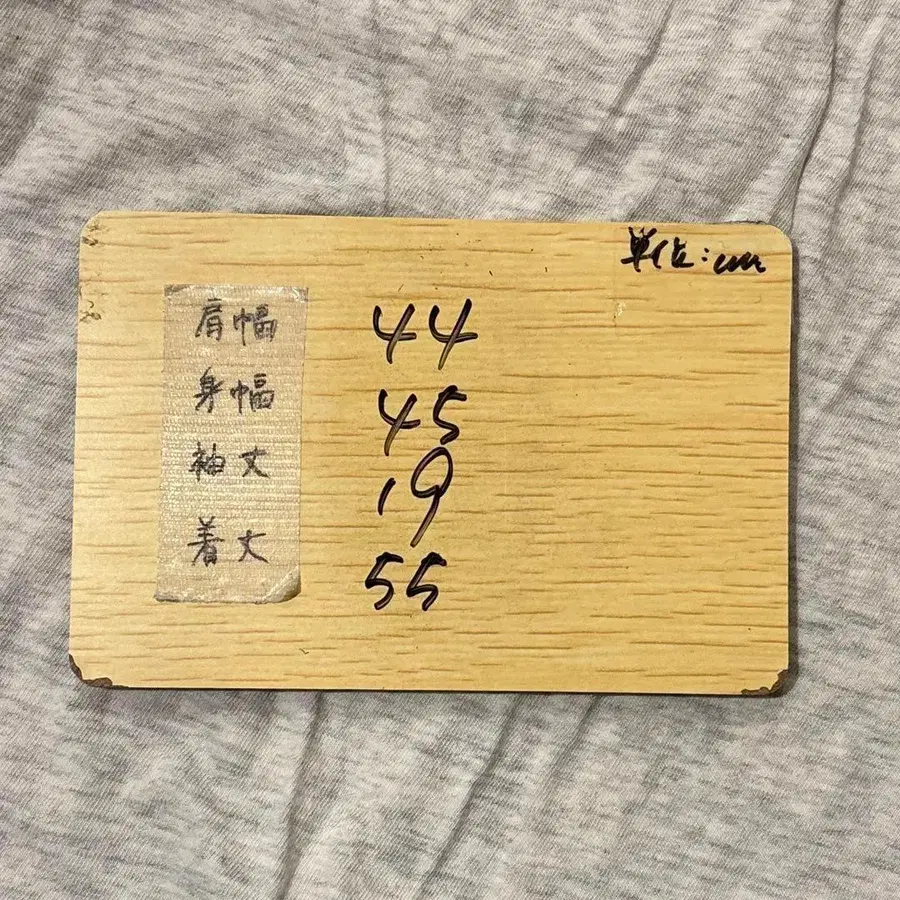 単位:cm
肩幅 44
身幅 45
袖丈 19
着丈 55